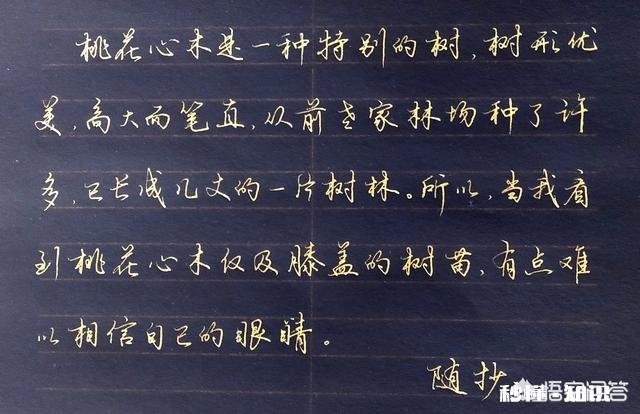 桃花心木是一种特别的树,树形优
美,高大而笔直,从前老家林场种了许
多,已长成几丈的一片树林。所以,当我看
到桃花心木仅及膝盖的树苗,有点难
以相信自己的眼睛。
随抄
悟空问答
秒懂·知识